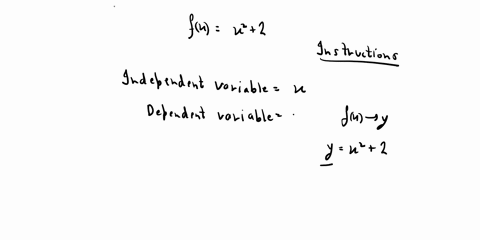 f(x) = x² + 2
Instructions
Independent variable = x
Dependent variable =
f(x) → y
y = x² + 2